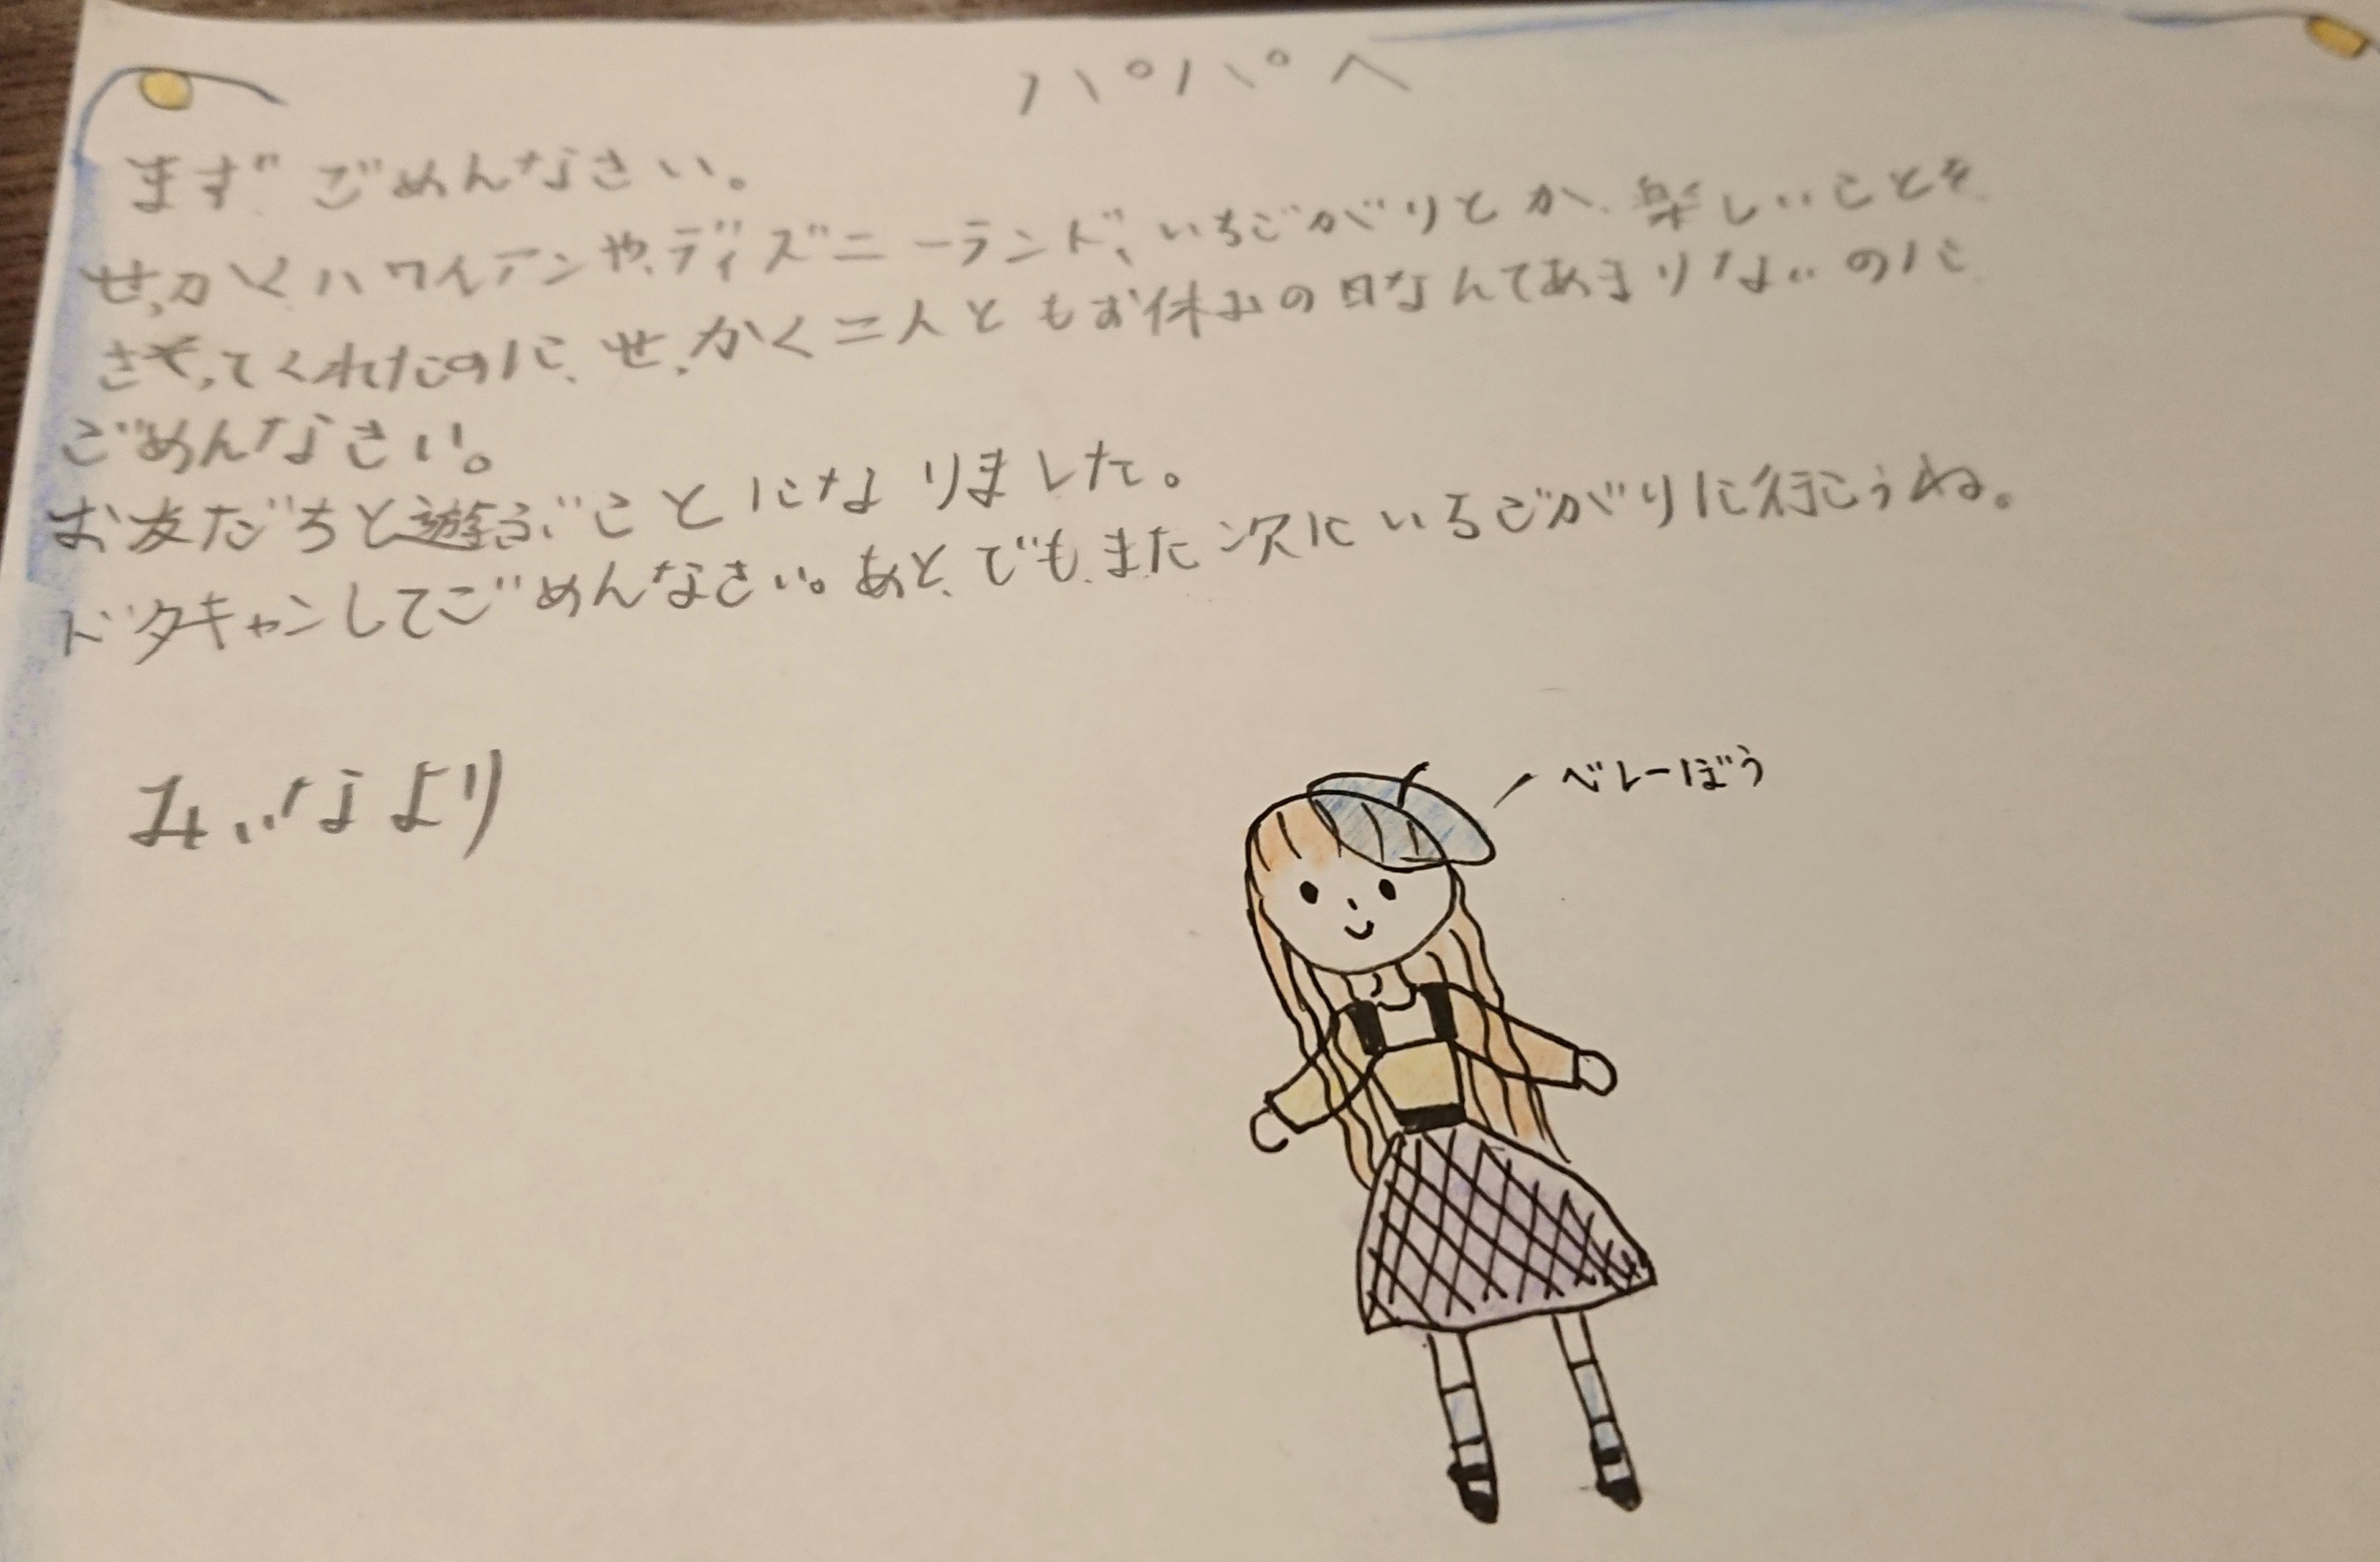 パパへ
まず ごめんなさい。
せっかくハワイアンや、ディズニーランド、いちごがりとか、楽しいことを
させてくれたのに、せっかく二人ともお休みの日なんてあまりないのに
ごめんなさい。
お友だちと遊ぶことになりました。
ドタキャンしてごめんなさい。あと、でも、また次にいちごがりに行こうね。
みいなより
ベレーぼう